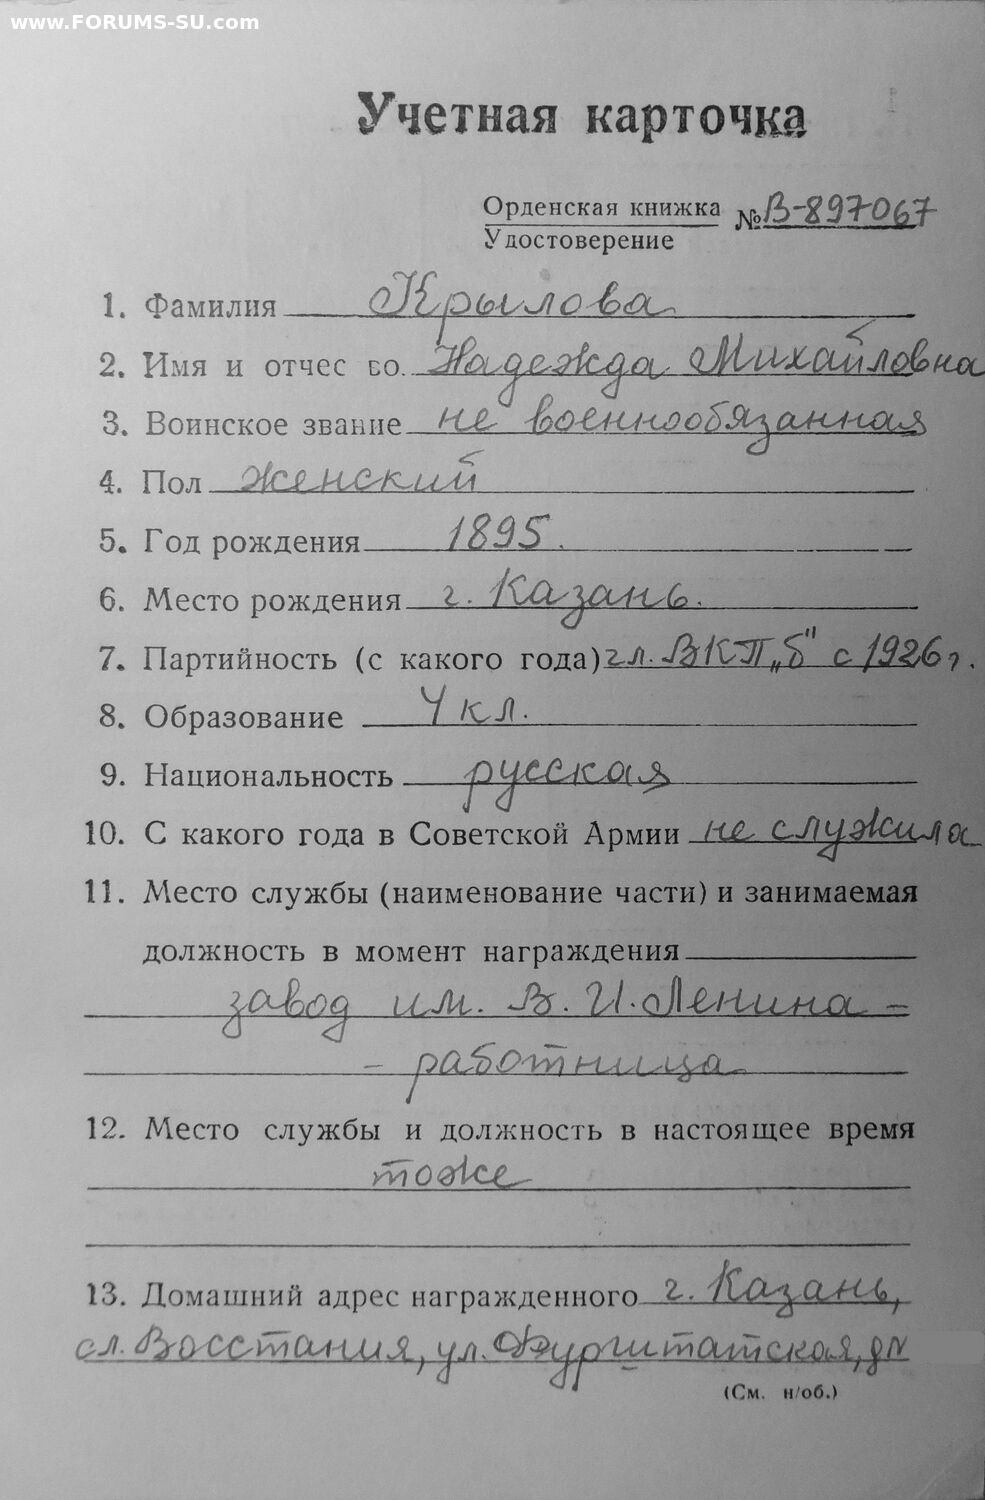 www.FORUMS-SU.com
Учетная карточка
Орденская книжка № В-897067
Удостоверение
1. Фамилия Крылова
2. Имя и отчес во. Надежда Михайловна
3. Воинское звание не военнообязанная
4. Пол женский
5. Год рождения 1895.
6. Место рождения г. Казань.
7. Партийность (с какого года) чл. ВКП„б" с 1926 г.
8. Образование 4 кл.
9. Национальность русская
10. С какого года в Советской Армии не служила
11. Место службы (наименование части) и занимаемая
должность в момент награждения
завод им. В. И. Ленина –
– работница
12. Место службы и должность в настоящее время
тоже
13. Домашний адрес награжденного г. Казань,
сл. Восстания, ул. Фурштатская, д№
(См. н/об.)